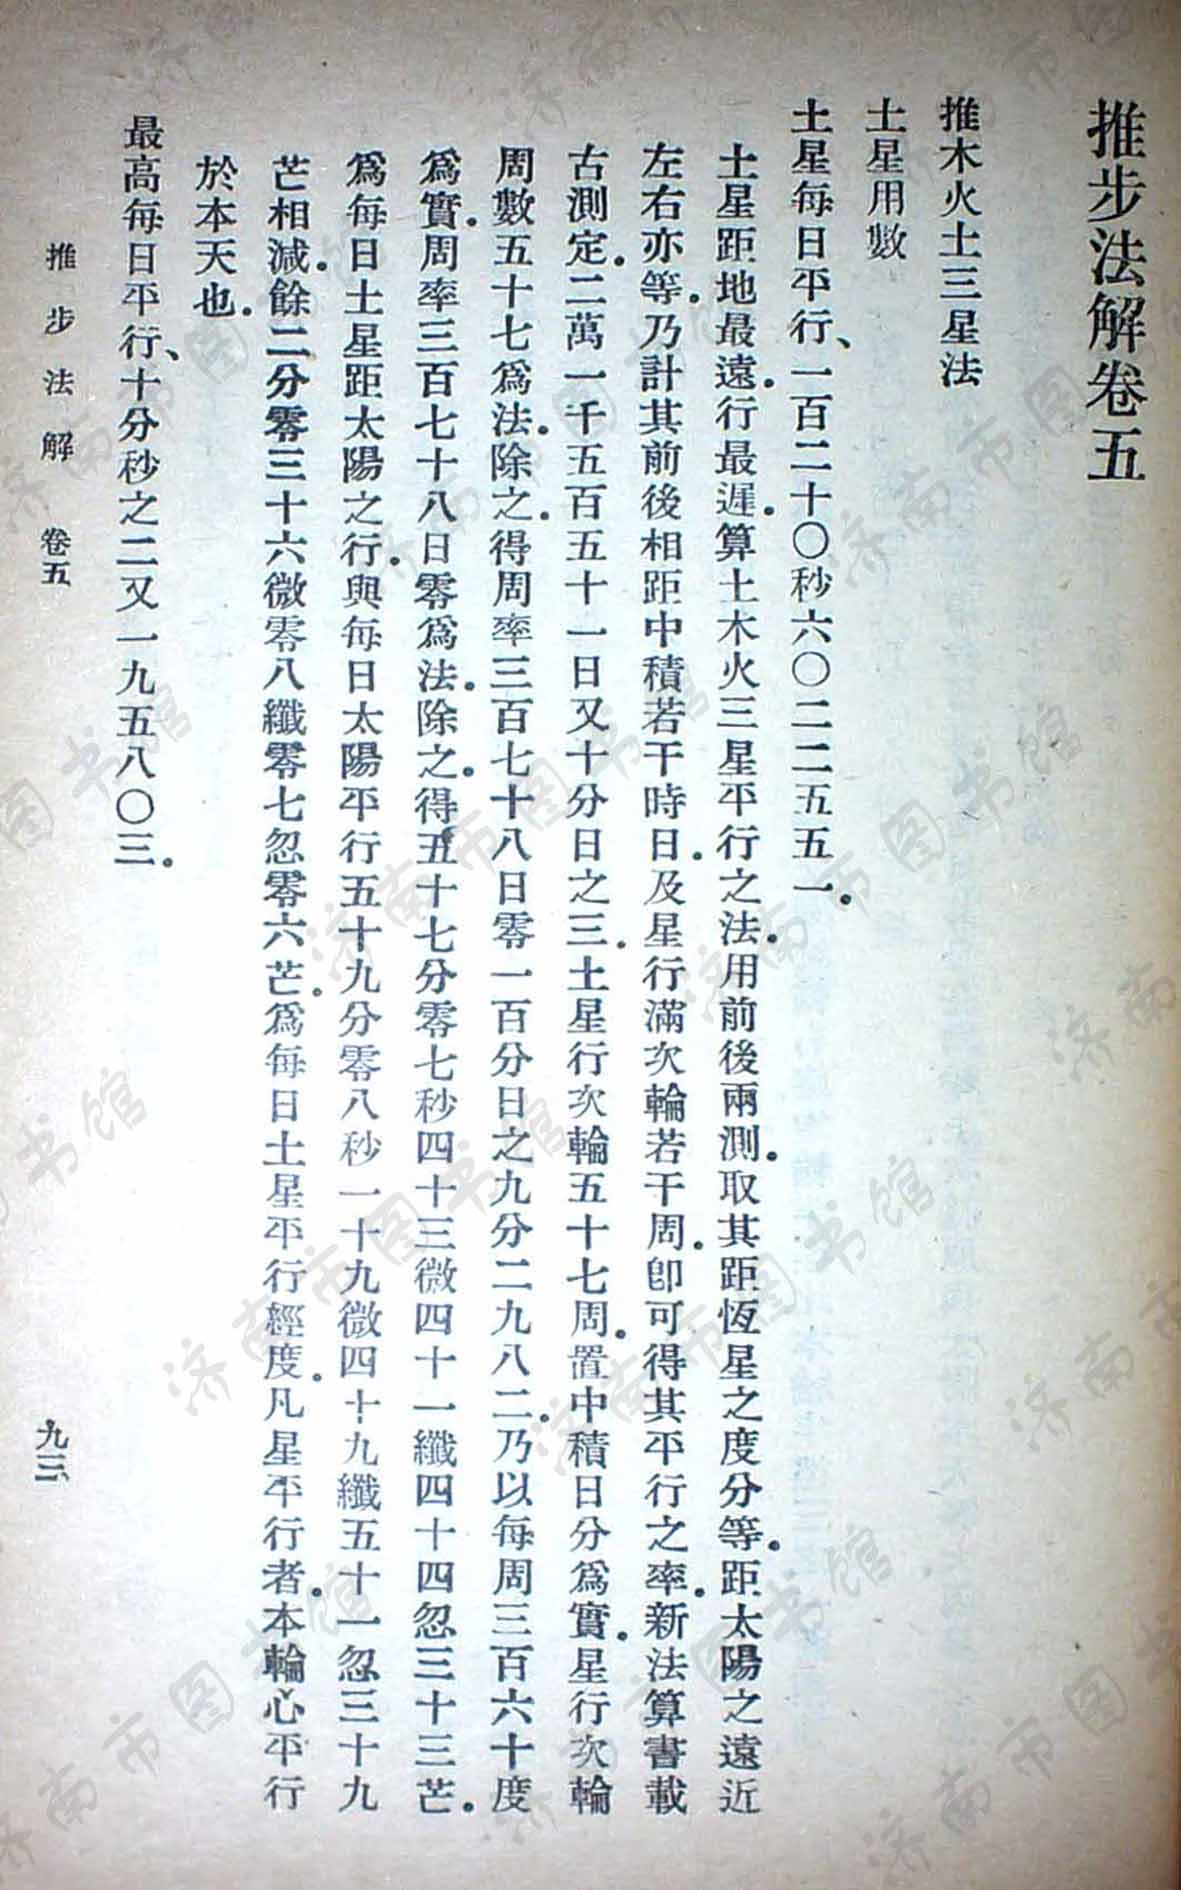 推步法解卷五
推木火土三星法
土星用數
土星每日平行、一百二十〇秒六〇二二五五一。
土星距地最遠。行最遲。算土木火三星平行之法。用前後兩測。取其距恆星之度分等。距太陽之遠近
左右亦等。乃計其前後相距中積若干時日。及星行滿次輪若干周。卽可得其平行之率。新法算書載
古測定。二萬一千五百五十一日又十分日之三。土星行次輪五十七周。置中積日分爲實。星行次輪
周數五十七爲法。除之。得周率三百七十八日零一百分日之九分二九八二。乃以每周三百六十度
爲實。周率三百七十八日零爲法。除之。得五十七分零七秒四十三微四十一纖四十四忽三十三芒。
爲每日土星距太陽之行。與每日太陽平行五十九分零八秒一十九微四十九纖五十一忽三十九
芒相減。餘二分零三十六微零八纖零七忽零六芒。爲每日土星平行經度。凡星平行者。本輪心平行
於本天也。
最高每日平行、十分秒之二又一九五八〇三。
推步法解 卷五
九三
济南市图书馆